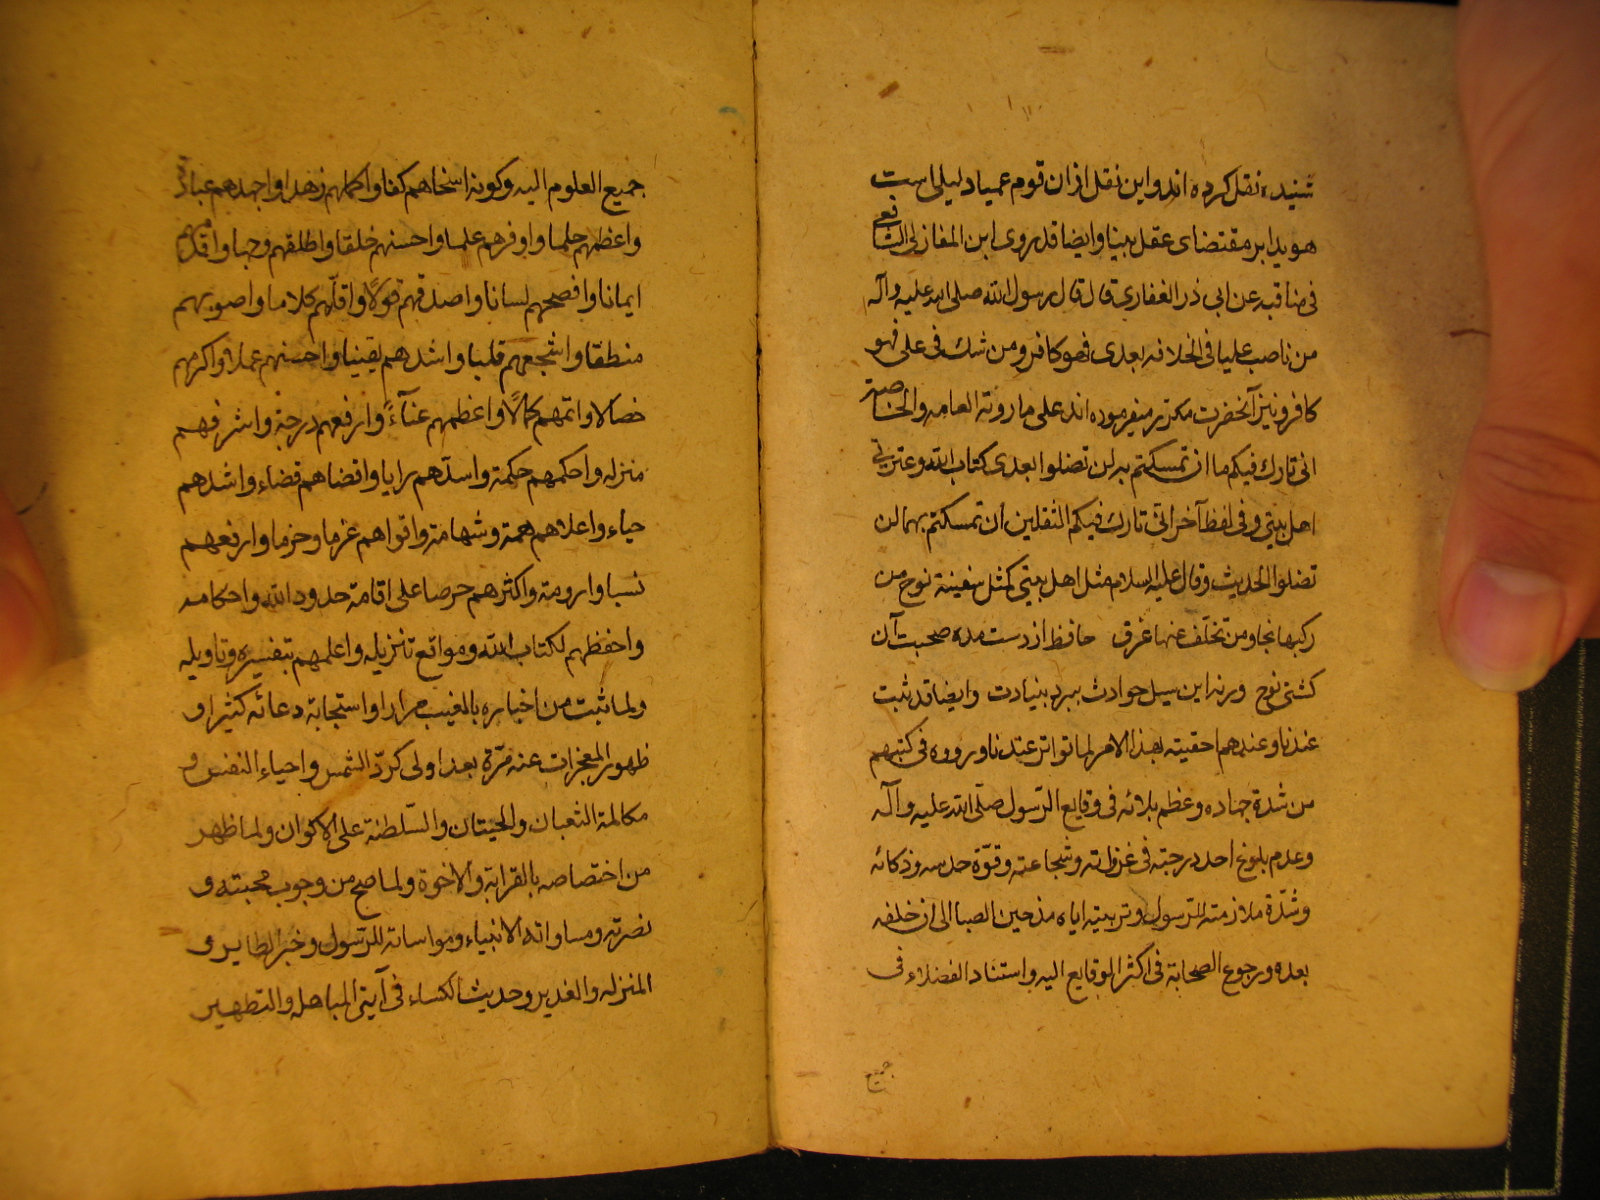 شنیده نقل کرده اند و این نقل ازان قوم عمیا دلیلی است
هویدا بر مقتضای عقل بینا وایضا قد روی ابن المغازلی الشافعی
فی مناقبه عن ابی ذر الغفاری قال قال رسول الله صلی الله علیه وآله
من ناصب علیا فی الخلافه بعدی فهو کافر ومن شک فی علی فهو
کافر ونیز آنحضرت مکرر میفرموده اند علی ما روته العامه والخاصة
انی تارک فیکم ما ان تمسکتم به لن تضلوا بعدی کتاب الله وعترتی
اهل بیتی وفی لفظ آخر انی تارک فیکم الثقلین ان تمسکتم بهما لن
تضلوا الحدیث وقال علیه السلام مثل اهل بیتی کمثل سفینة نوح من
رکبها نجا ومن تخلّف عنها غرق حافظ از دست مده صحبت آن
کشتی نوح ورنه این سیل حوادث ببرد بنیادت وایضا قد ثبت
عندنا وعندهم احقیته بهذا الامر لما تواتر عندنا ورووه فی کتبهم
من شدة جهاده وعظم بلائه فی وقایع الرّسول صلّی الله علیه وآله
وعدم بلوغ احد درجته فی غزواته وشجاعته وقوّة حدسه وذکائه
وشدّة ملازمته للرّسول وتربیته ایاه مذحین الصبا الی ان خلفه
بعده ورجوع الصحابة فی اکثر الوقایع الیه واستناد الفضلاء فی
جمیع
جمیع العلوم الیه وکونه اسخاهم کفا واکملهم زهدا واجهدهم عبادة
واعظمهم حلما واوفرهم علما واحسنهم خلقا واطلقهم وجها واقدمهم
ایمانا وافصحهم لسانا واصدقهم قولًا واقلّهم کلاما واصوبهم
منطقا واشجعهم قلبا واشدهم یقینا واحسنهم عملا واکرمهم
خصالا واتمهم کمالًا واعظمهم عنآءً وارفعهم درجة واشرفهم
منزله واحکمهم حکمة واسدّهم رایا واقضاهم قضاء واشدهم
حیاء واعلاهم همة وشهامة واقواهم عزما وحزما وارفعهم
نسبا وارومة واکثرهم حرصا علی اقامة حدود الله واحکامه
واحفظهم لکتاب الله ومواقع تنزیله واعلمهم بتفسیره وتاویله
ولما ثبت من اخباره بالغیب مرارا واستجابة دعائه کثیرا و
ظهور المعجزات عنه مرّة بعد اولی کردّ الشمس واحیاء النفس و
مکالمة الثعبان والحیتان والسّلطنة علی الاکوان ولما ظهر
من اختصاصه بالقرابة والاخوة ولما صح من وجوب محبته و
نصرته ومساواته الانبیاء ومواساته للرّسول وخبر الطایر و
المنزله والغدیر وحدیث الکساء فی آیتی المباهله والتطهیر